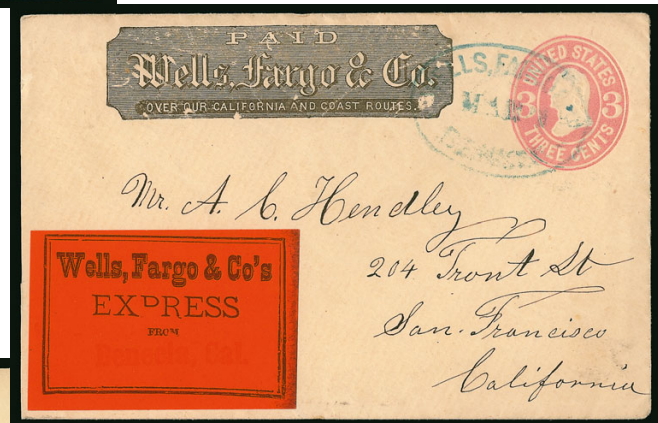 PAID
Wells, Fargo & Co.
OVER OUR CALIFORNIA AND COAST ROUTES.
WELLS, FARGO
UNITED STATES
3 3
THREE CENTS
Mr. A. C. Hendley
204 Front St
San. Francisco
California
Wells, Fargo & Co's
EXPRESS
FROM
Benecia, Cal.